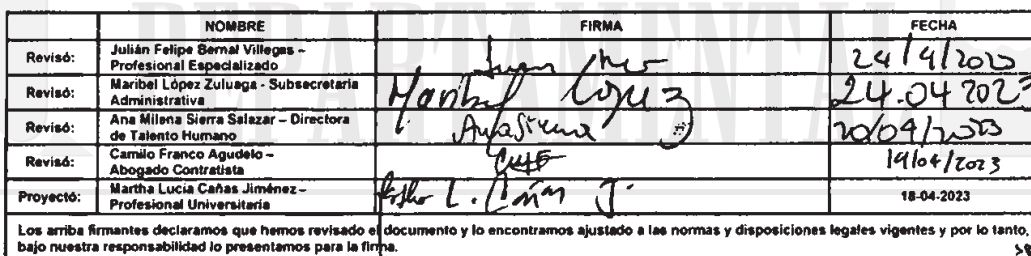 NOMBRE FIRMA FECHA
Revisó: Julián Felipe Bernal Villegas –
Profesional Especializado 24/4/2023
Revisó: Maribel López Zuluaga - Subsecretaria
Administrativa Maribel López Z 24.04 2023
Revisó: Ana Milena Sierra Salazar – Directora
de Talento Humano AnaSierra 20/04/2023
Revisó: Camilo Franco Agudelo –
Abogado Contratista 19/04/2023
Proyectó: Martha Lucía Cañas Jiménez –
Profesional Universitaria L. Cañas J. 18-04-2023
Los arriba firmantes declaramos que hemos revisado el documento y lo encontramos ajustado a las normas y disposiciones legales vigentes y por lo tanto,
bajo nuestra responsabilidad lo presentamos para la firma.